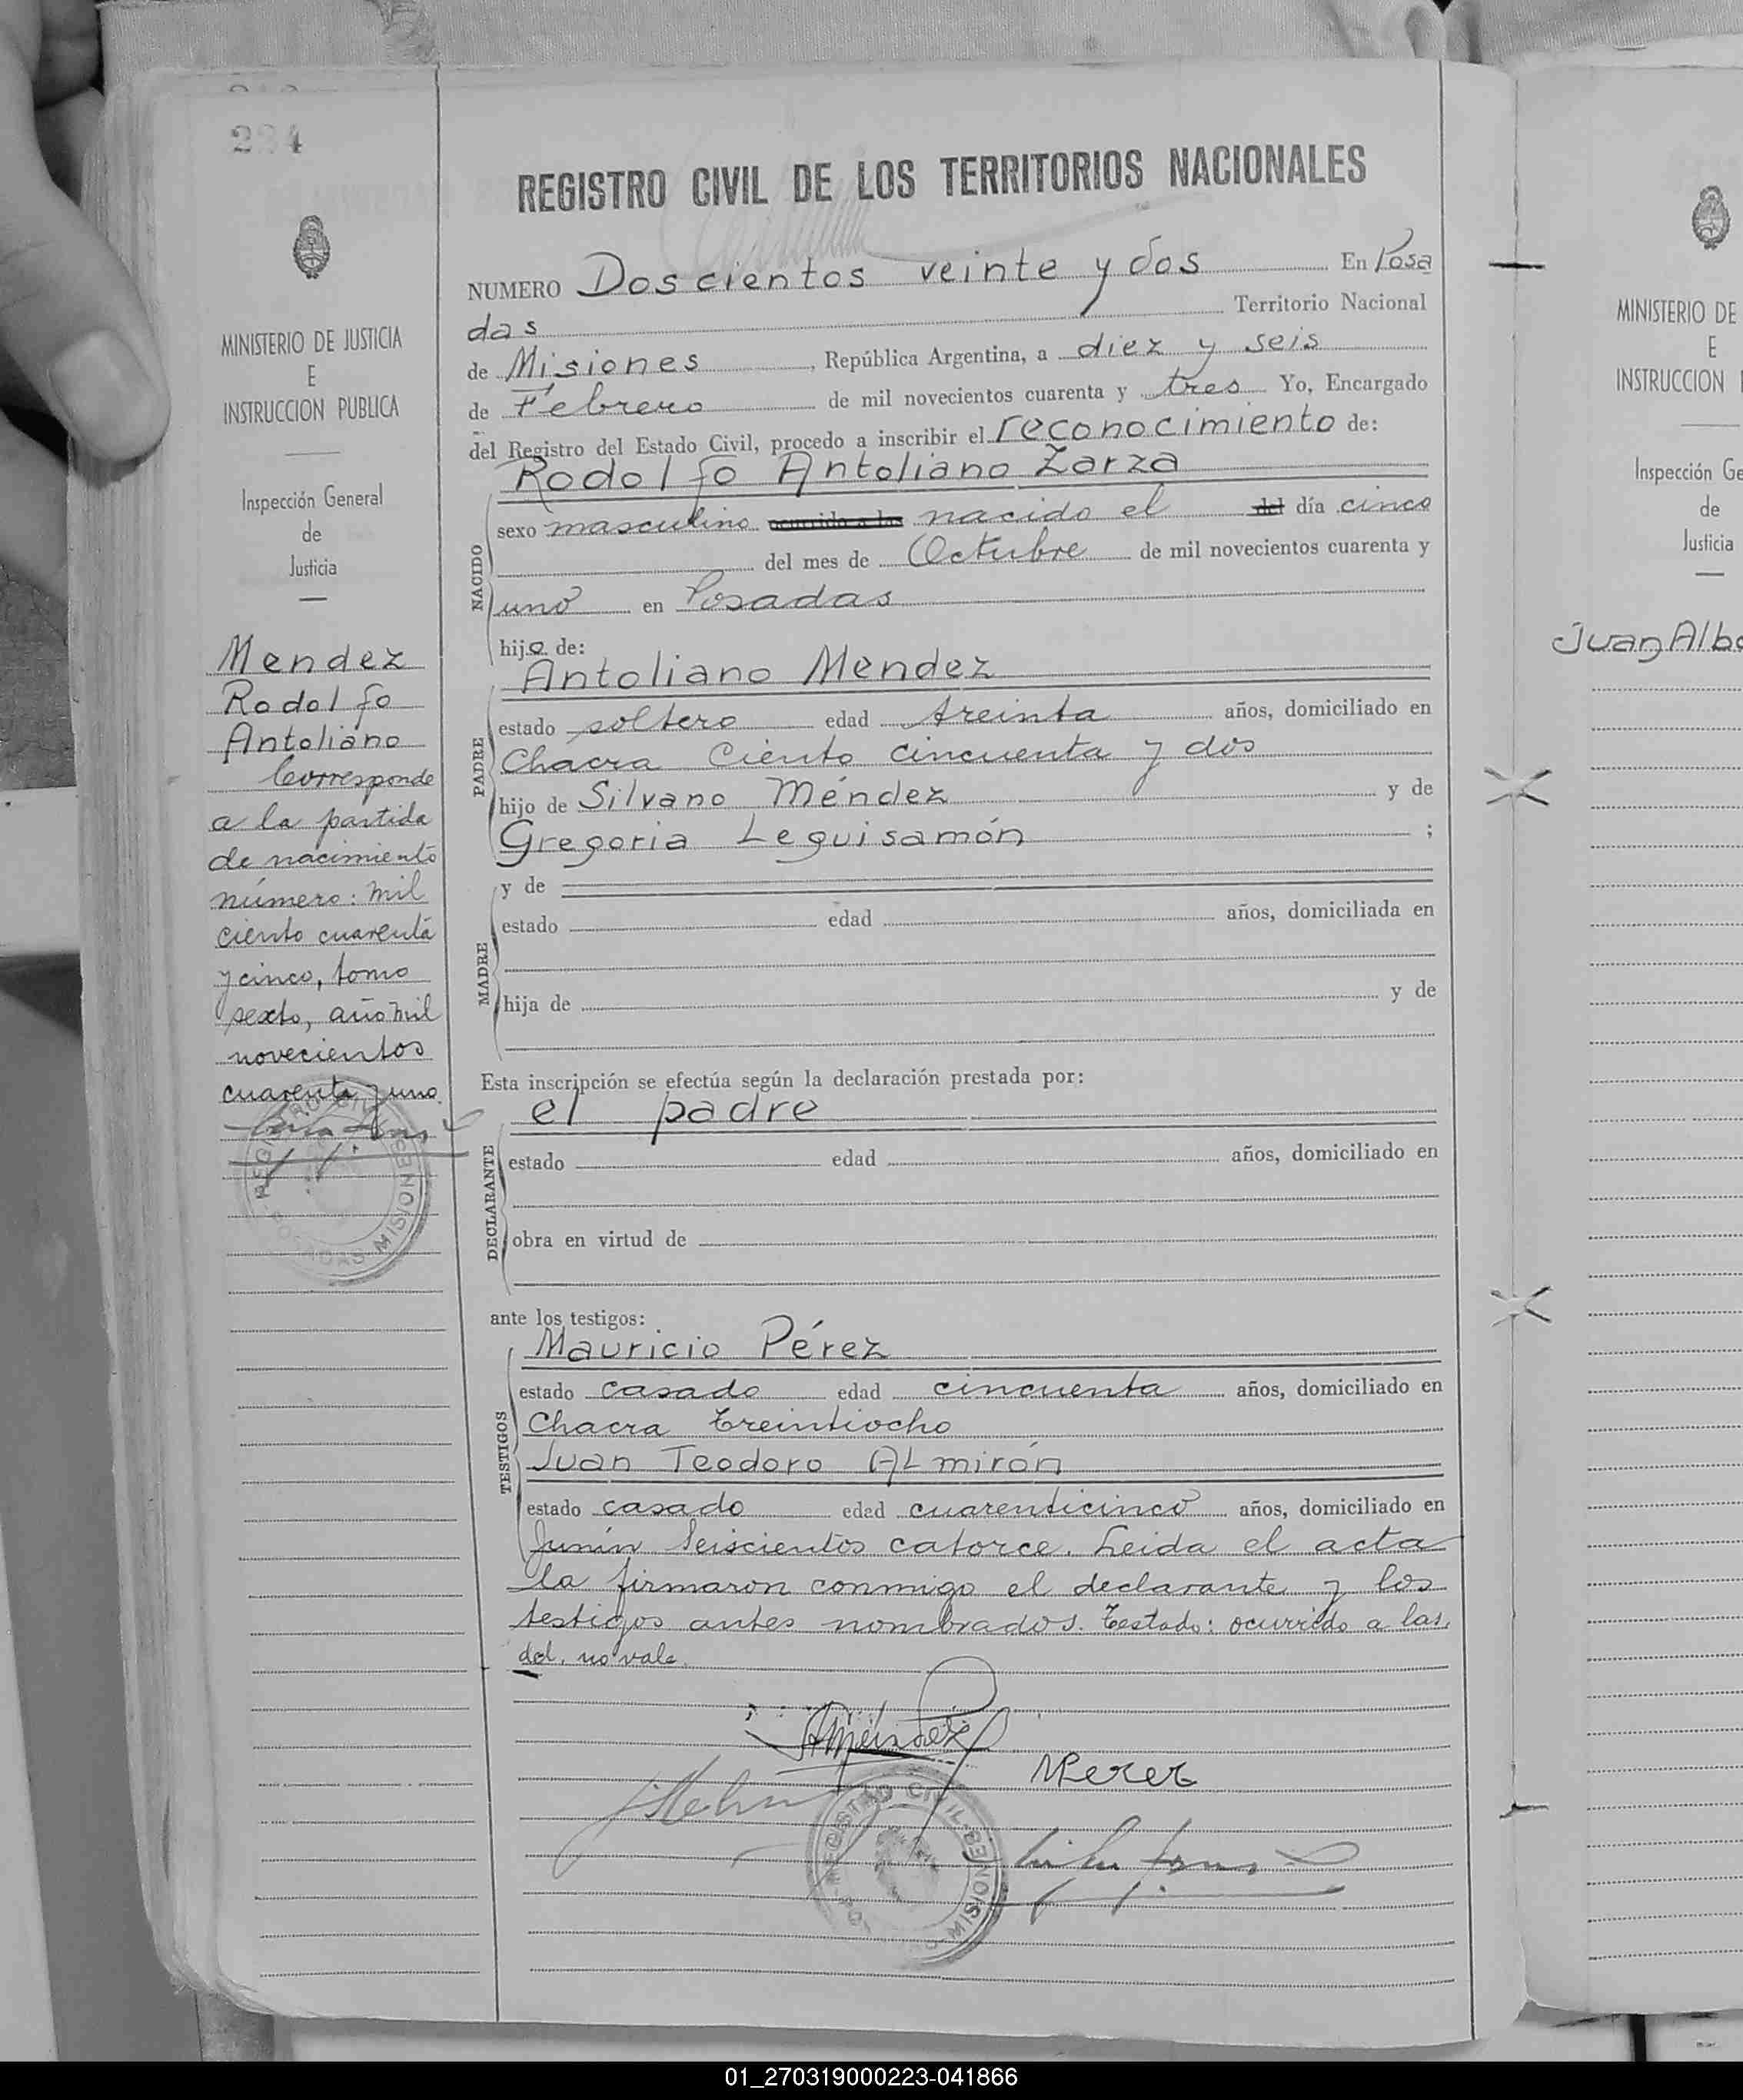 234
MINISTERIO DE JUSTICIA
E
INSTRUCCION PUBLICA
Inspección General
de
Justicia
Mendez
Rodolfo
Antoliano
Corresponde
a la partida
de nacimiento
número: mil
ciento cuarenta
y cinco, tomo
sexto, año mil
novecientos
cuarenta y uno.
REGISTRO CIVIL DE LOS TERRITORIOS NACIONALES
NUMERO Doscientos veinte y dos En Posa
das Territorio Nacional
de Misiones, República Argentina, a diez y seis
de Febrero de mil novecientos cuarenta y tres Yo, Encargado
del Registro del Estado Civil, procedo a inscribir el reconocimiento de:
Rodolfo Antoliano Zarza
NACIDO
sexo masculino ocurrido a las nacido el del día cinco
del mes de Octubre de mil novecientos cuarenta y
uno en Posadas
hijo de:
Antoliano Mendez
PADRE
estado soltero edad treinta años, domiciliado en
Chacra Ciento cincuenta y dos
hijo de Silvano Méndez y de
Gregoria Leguisamón ;
MADRE
y de
estado edad años, domiciliada en
hija de y de
Esta inscripción se efectúa según la declaración prestada por:
el padre
DECLARANTE
estado edad años, domiciliado en
obra en virtud de
ante los testigos:
Mauricio Pérez
TESTIGOS
estado casado edad cincuenta años, domiciliado en
Chacra treintiocho
Juan Teodoro ALmirón
estado casado edad cuarenticinco años, domiciliado en
Junín Seiscientos catorce. Leida el acta
la firmaron conmigo el declarante y los
testigos antes nombrados. Testado: ocurrido a las,
del. no vale.
AMéndez
MPerez
MINISTERIO DE
E
INSTRUCCION
Inspección Ge
de
Justicia
Juan Albe
01_270319000223-041866